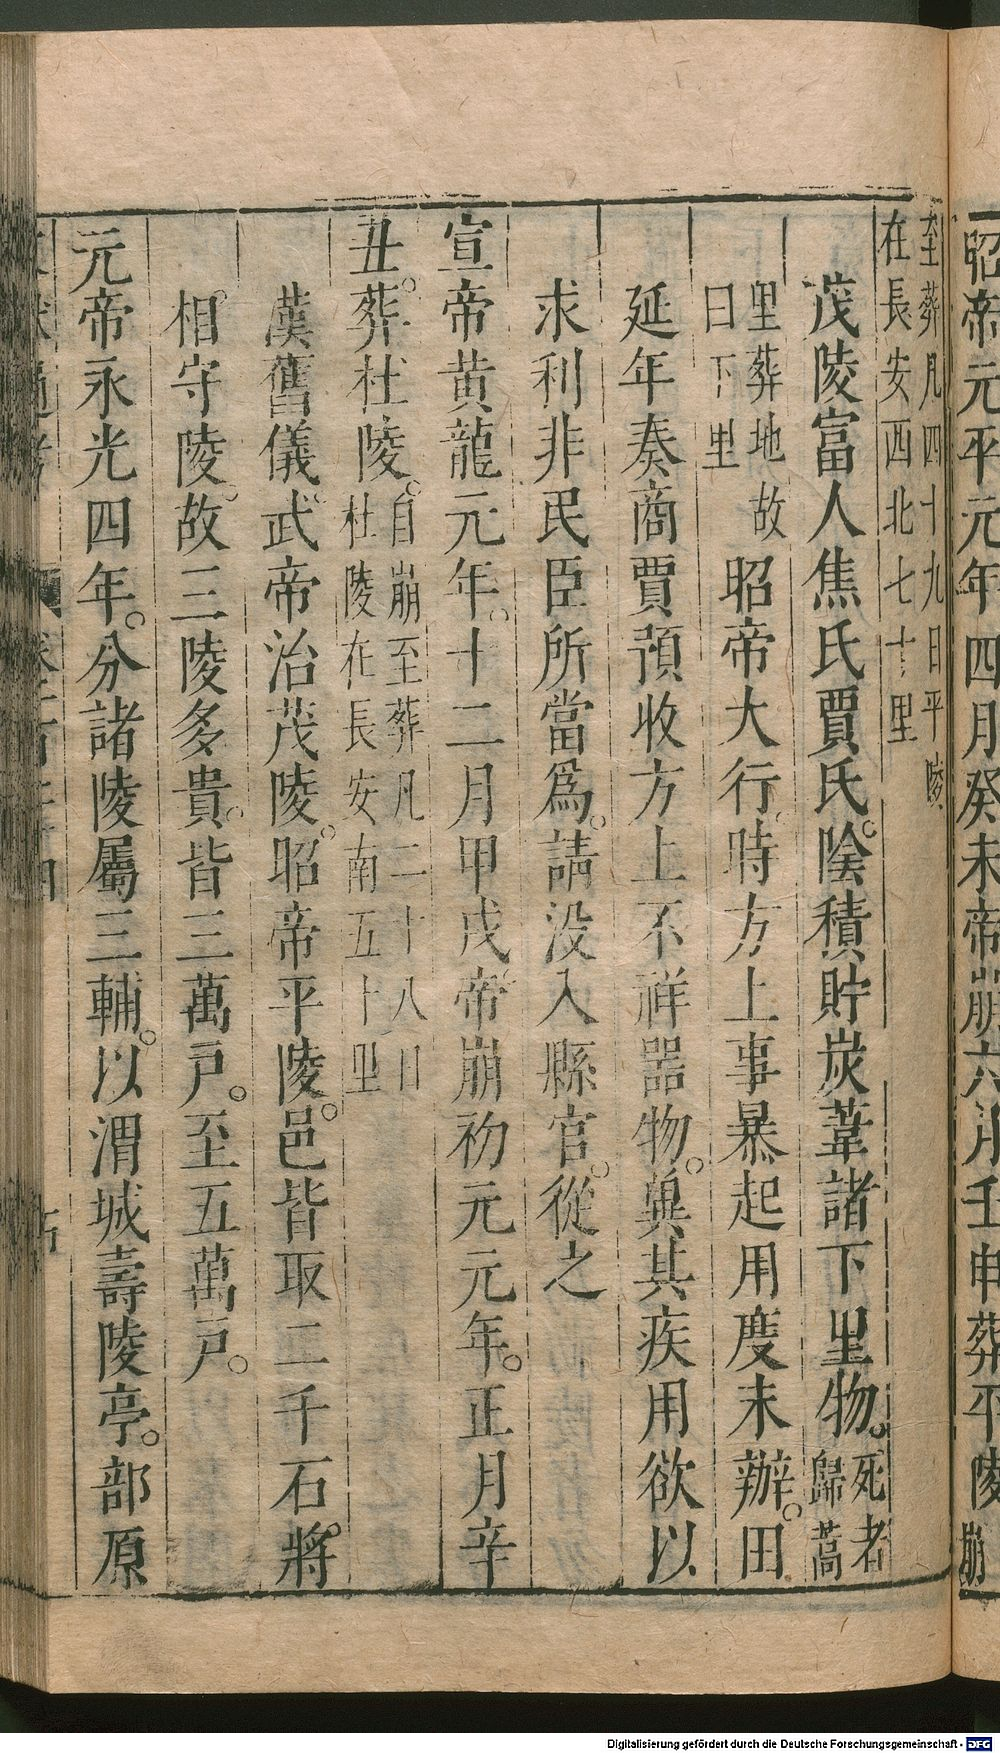 昭帝元平元年四月癸未帝崩六月壬申葬平陵崩
至葬凡四十九日平陵
在長安西北七十里
茂陵富人焦氏賈氏。陰積貯炭葦諸下里物。死者歸蒿
里葬地故曰下里
故昭帝大行。時方上事暴起用度未辦。田
延年奏商賈預收方上不祥器物。兾其疾用欲以
求利非民臣所當爲。請没入縣官。從之
宣帝黄龍元年。十二月甲戌帝崩初元元年。正月辛
丑。葬杜陵。自崩至葬凡二十八日杜陵在長安南五十里
漢舊儀武帝治茂陵。昭帝平陵。邑皆取二千石。將
相。守陵。故三陵多貴。皆三萬戸。至五萬戸。
元帝永光四年。分諸陵屬三輔。以渭城壽陵亭。部原
Digitalisierung gefördert durch die Deutsche Forschungsgemeinschaft - DFG